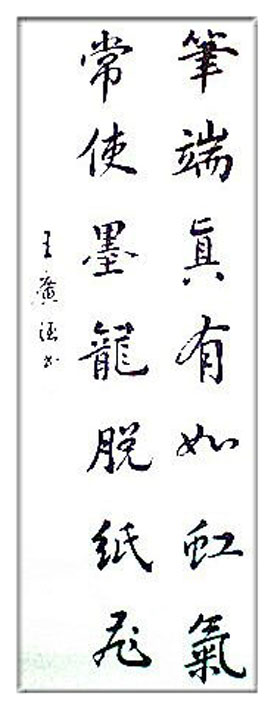 筆端真有如虹氣
常使墨龍脫紙飛
王廣德书